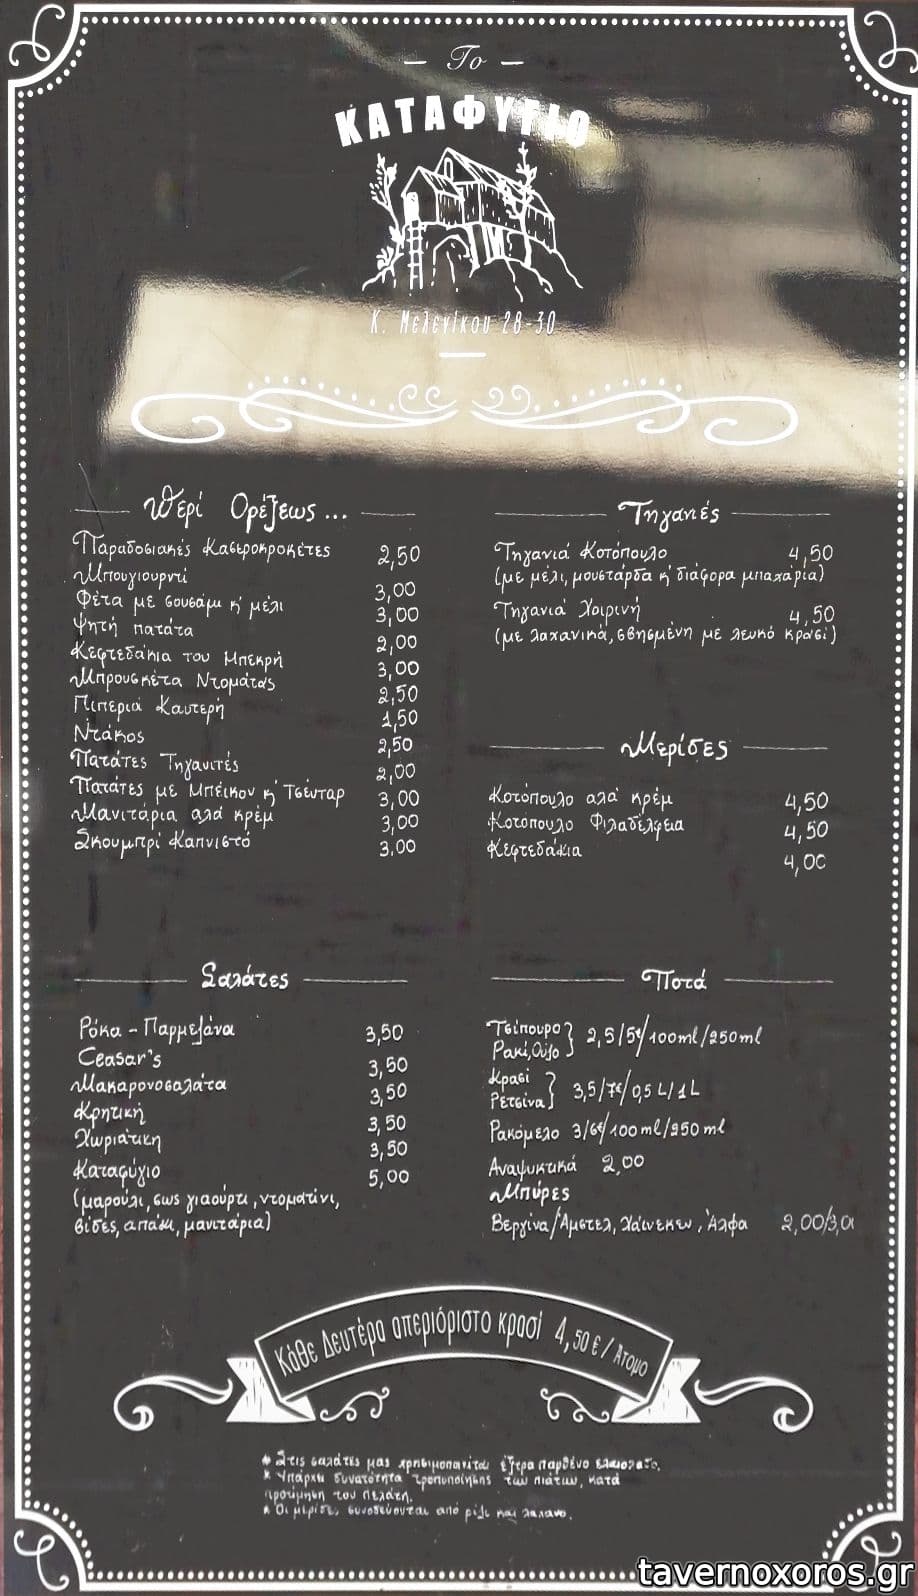 Το
ΚΑΤΑΦΥΓΙΟ
Κ. Μελενίκου 28-30
Περί Ορέξεως...
Παραδοσιακές Κασεροκροκέτες 2,50
Μπουγιουρντί 3,00
Φέτα με σουσάμι κ' μέλι 3,00
Ψητή πατάτα 2,00
Κεφτεδάκια του Μπεκρή 3,00
Μπρουσκέτα Ντομάτας 2,50
Πιπεριά Καυτερή 1,50
Ντάκος 2,50
Πατάτες Τηγανιτές 2,00
Πατάτες με Μπέικον κ' Τσένταρ 3,00
Μανιτάρια αλά κρέμ 3,00
Σκουμπρί Καπνιστό 3,00
Τηγανιές
Τηγανιά Κοτόπουλο 4,50
(με μέλι, μουστάρδα κ' διάφορα μπαχάρια)
Τηγανιά Χοιρινή 4,50
(με λαχανικά, σβησμένη με λευκό κρασί)
Μερίδες
Κοτόπουλο αλά κρέμ 4,50
Κοτόπουλο Φιλαδέλφεια 4,50
Κεφτεδάκια 4,00
Σαλάτες
Ρόκα - Παρμεζάνα 3,50
Ceasar's 3,50
Μακαρονοσαλάτα 3,50
Κρητική 3,50
Χωριάτικη 3,50
Καταφύγιο 5,00
(μαρούλι, σως γιαούρτι, ντοματίνι,
βίδες, απάκι, μανιτάρια)
Ποτά
Τσίπουρο
Ρακί, Ούζο } 2,5/5€/100ml/250ml
Κρασί
Ρετσίνα } 3,5/7€/0,5L/1L
Ρακόμελο 3/6€/100ml/250ml
Αναψυκτικά 2,00
Μπύρες
Βεργίνα/Άμστελ, Χάινεκεν, Άλφα 2,00/3,0
Κάθε Δευτέρα απεριόριστο κρασί 4,50€/Άτομο
* Στις σαλάτες μας χρησιμοποιείται έξτρα παρθένο ελαιόλαδο.
* Υπάρχει δυνατότητα τροποποίησης των πιάτων, κατά
προτίμηση του πελάτη.
* Οι μερίδες συνοδεύονται από ρύζι και λάχανο.
tavernoxoros.gr